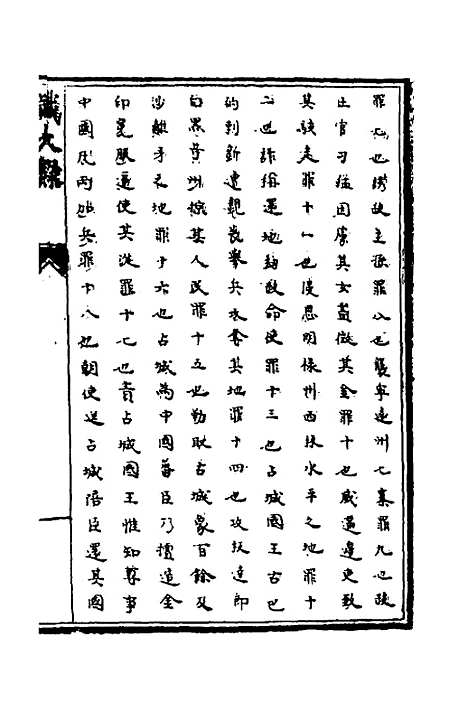 罪九也殺故主孫罪八也襲寧遠州七寨罪九也殺
土官刁猛因虜其女盖徵其金罪十也威逼邊吏致
其驍走罪十一也侵思明祿州西抹水平之地罪十
二也詐指還地對敕命使罪十三也占城國王占巴
的剌新遭親喪擧兵攻奪其地罪十四也攻扶達郎
白黑等州掠其人民罪十五也勒取占城象百餘及
沙離牙等地罪十六也占城為中國藩臣乃擅造金
印冕服逼使其從罪十七也責占城國王惟知尊事
中國反再加兵罪十八也朝使送占城陪臣還其國
識大錄